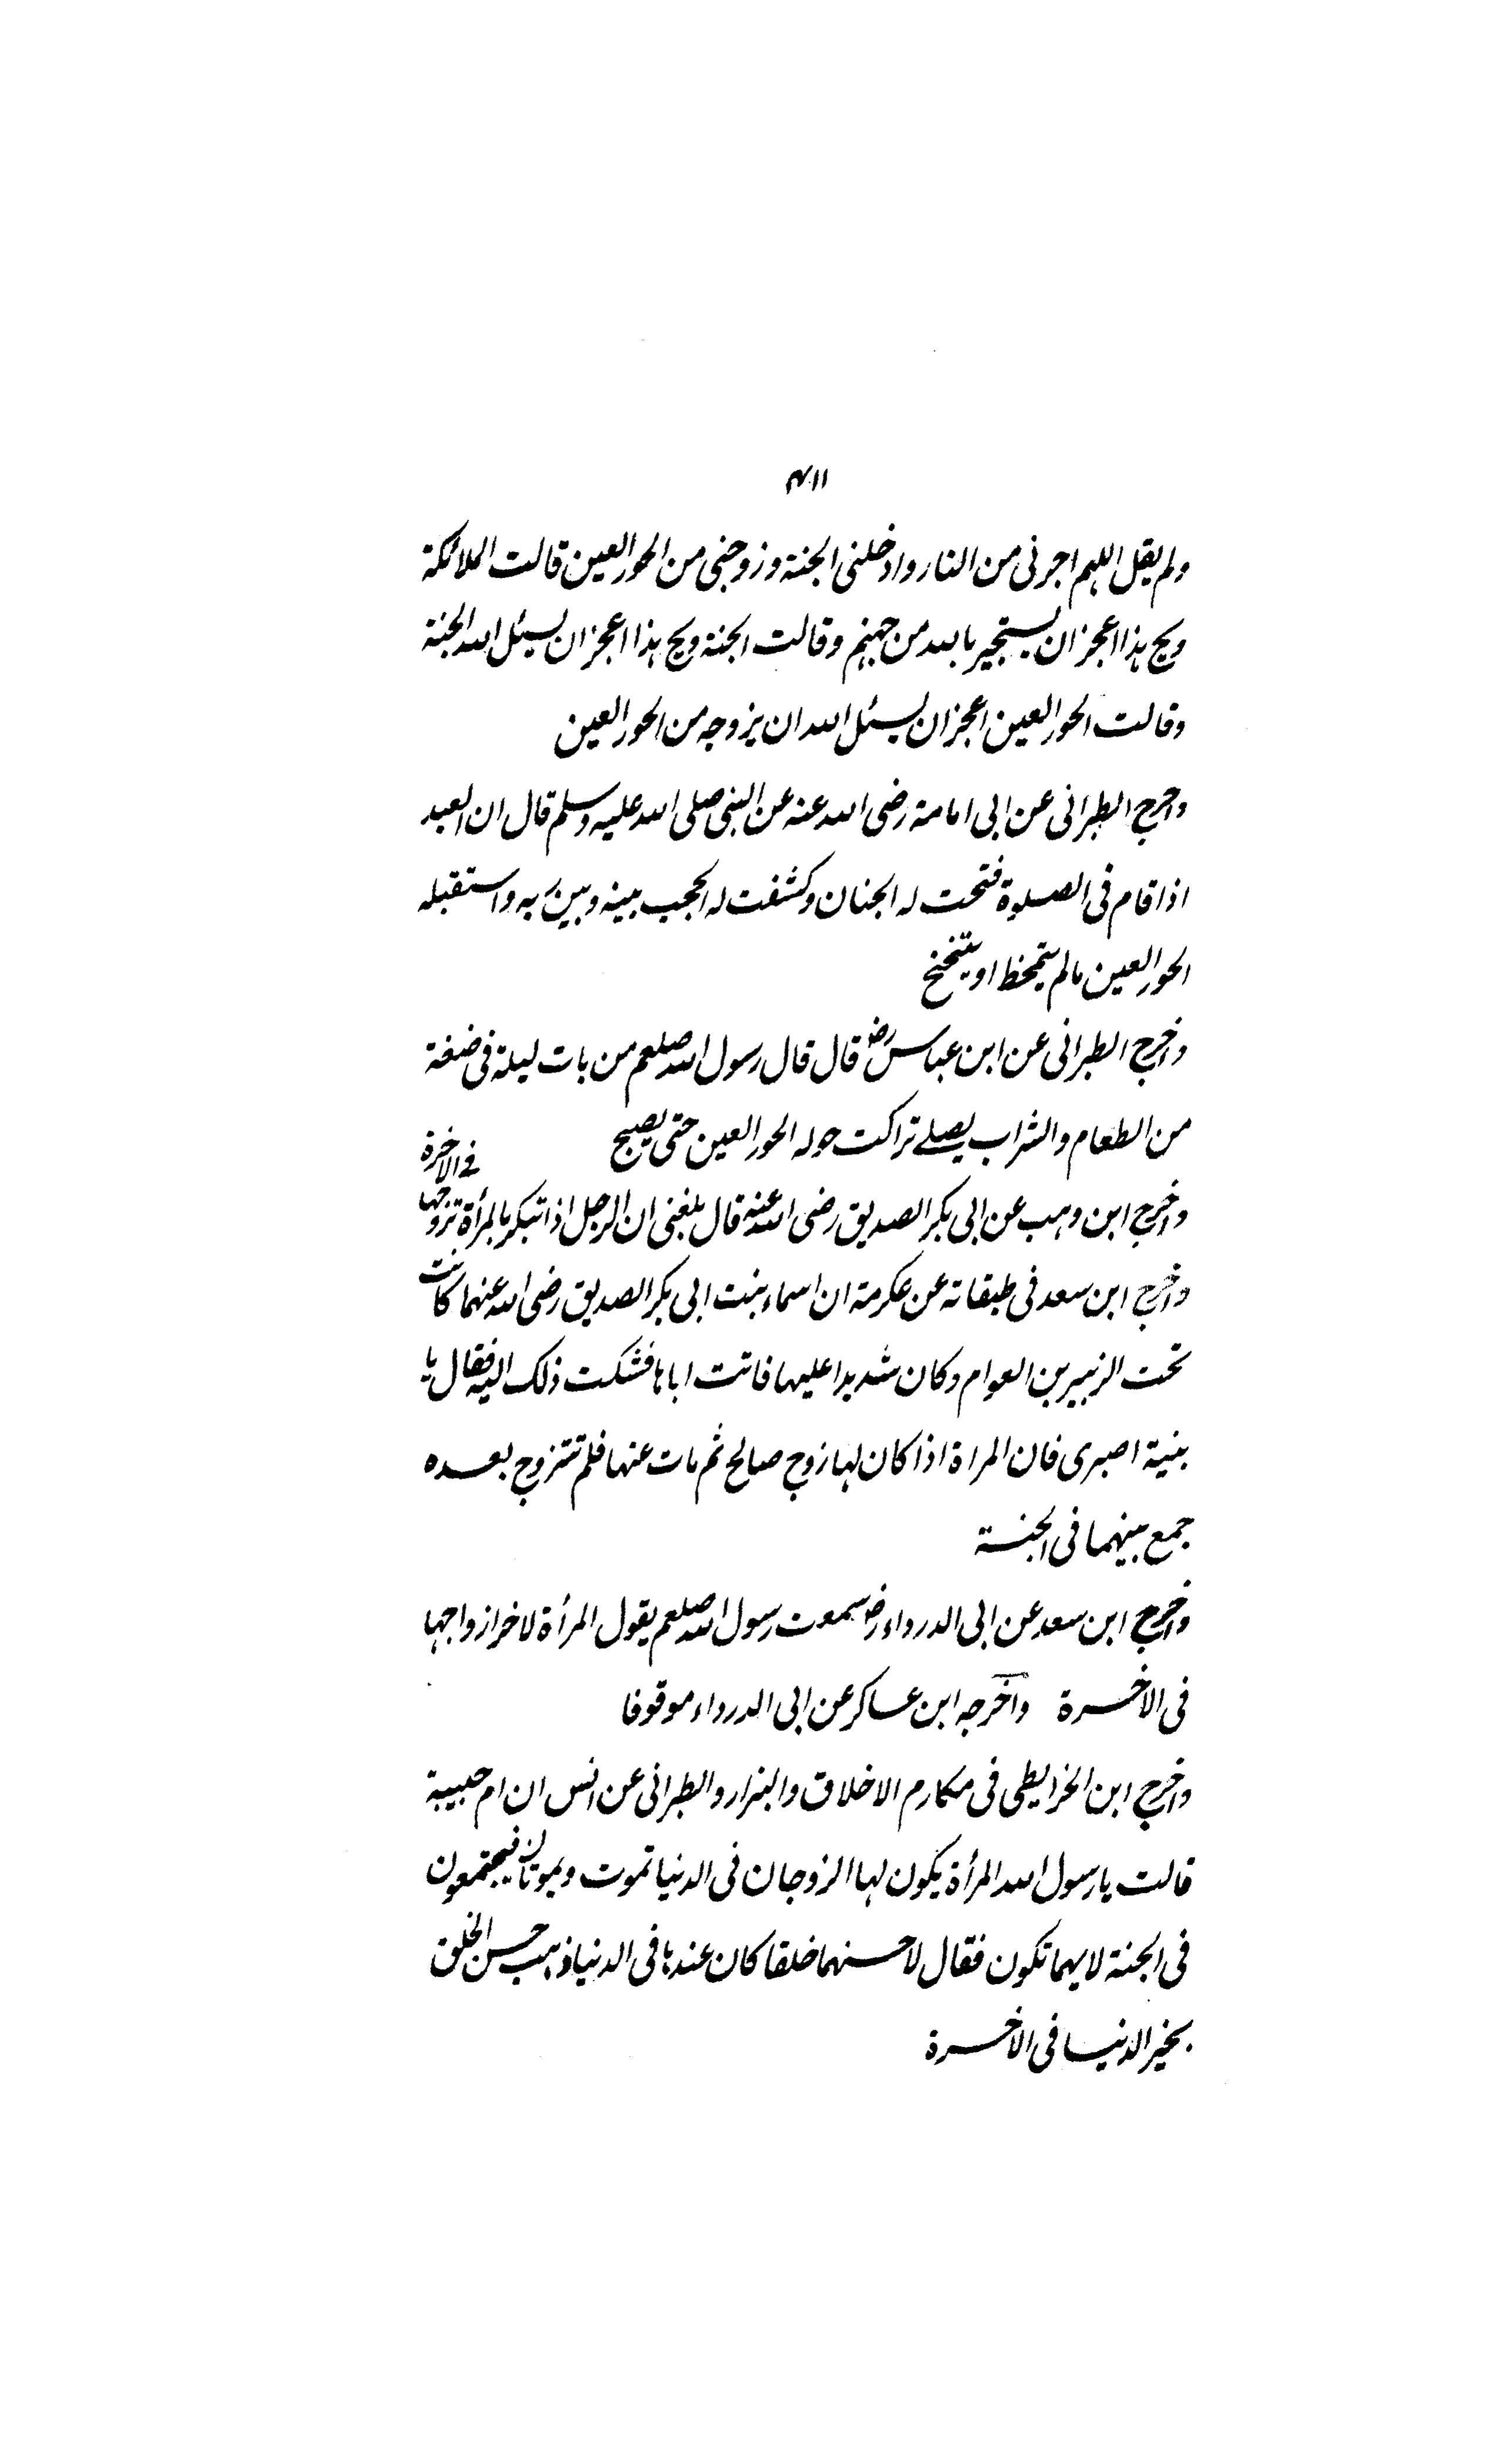 ولم یقل اللہم اجرنی من النار وادخلنی الجنة وزوجنی من الحور العین قالت الملائکة
ویح ہذا اعجز ان یستجیر باللہ من جہنم وقالت الجنة ویح ہذا اعجز ان یسئل اللہ الجنة
وقالت الحور العین اعجز ان یسئل اللہ ان یزوجہ من الحور العین
واخرج الطبرانی عن ابی امامة رضی اللہ عنہ عن النبی صلی اللہ علیہ وسلم قال ان العبد
اذا قام فی الصلوة فتحت لہ الجنان وکشفت لہ الحجب بینہ وبین ربہ واستقبلہ
الحور العین مالم یتمخط او یتنخنح
واخرج الطبرانی عن ابن عباس رض قال قال رسول اللہ صلعم من بات لیلة فی خفة
من الطعام والشراب یصلے تراکت حولہ الحور العین حتی یصبح
واخرج ابن وہب عن ابی بکر الصدیق رضی اللہ عنہ قال بلغنی ان الرجل اذا تبکر بالمرأة تزوجہا فی الاخرة
واخرج ابن سعد فی طبقاتہ عن عکرمة ان اسماء بنت ابی بکر الصدیق رضی اللہ عنہما کانت
تحت الزبیر بن العوام وکان شدیدا علیہا فاتت اباہا فشکت ذلک الیہ فقال یا
بنیة اصبری فان المراة اذا کان لہا زوج صالح ثم مات عنہا فلم تتزوج بعدہ
جمع بینہما فی الجنة
واخرج ابن سعد عن ابی الدرداء رض سمعت رسول اللہ صلعم یقول المرأة لاخر ازواجہا
فی الاخرة واخرجہ ابن عساکر عن ابی الدرداء موقوفا
واخرج ابن الخرایطی فی مکارم الاخلاق والبزار والطبرانی عن انس ان ام حبیبة
قالت یا رسول اللہ المرأة یکون لہا الزوجان فی الدنیا تموت ویموتان فیجتمعون
فی الجنة لایہما تکون فقال لاحسنہما خلقا کان عندہا فی الدنیا ذہب حسن الخلق
بخیر الدنیا فی الاخرة